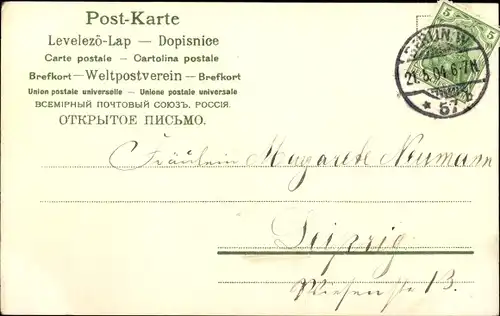 Post-Karte
Levelező-Lap — Dopisnice
Carte postale — Cartolina postale
Brefkort — Weltpostverein — Brefkort
Union postale universelle — Unione postale universale
ВСЕМІРНЫЙ ПОЧТОВЫЙ СОЮЗЪ. РОССІЯ.
ОТКРЫТОЕ ПИСЬМО.
5 5
BERLIN. W.
21.5.04.6-7N.
* 57
Fräulein Margarete Neumann
Leipzig
Wiesenstr. 13.